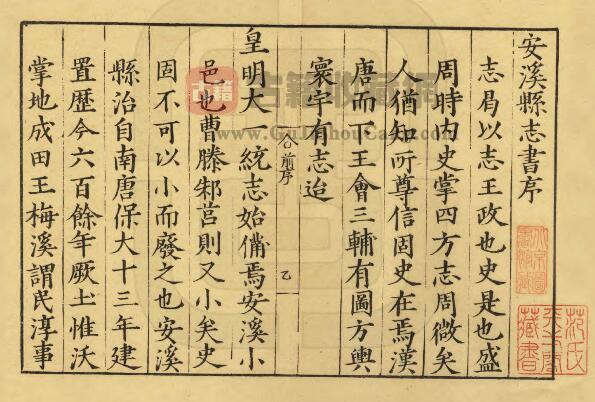 安溪縣志書序
志曷以志王政也史是也盛
周時内史掌四方志周微矣
人猶知所尊信固史在焉漢
唐而下王會三輔有圖方輿
寰宇有志迨
皇明大一統志始備焉安溪小
邑也曹滕邾莒則又小矣史
固不可以小而廢之也安溪
縣治自南唐保大十三年建
置歷今六百餘年厥土惟沃
掌地成田王梅溪謂民淳事
前序
乙
范氏
天一閣
藏書
古籍
古籍收藏網
www.GuJiShouCang.com